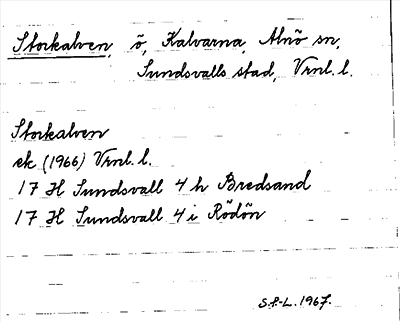 Storkalven, ö, Kalvarna, Alnö sn,
Sundsvalls stad, Vrnl. l.
Storkalven
ek (1966) Vrnl. l.
17 H Sundsvall 4 h Bredsand
17 H Sundsvall 4 i Rödön
S.P-L. 1967.